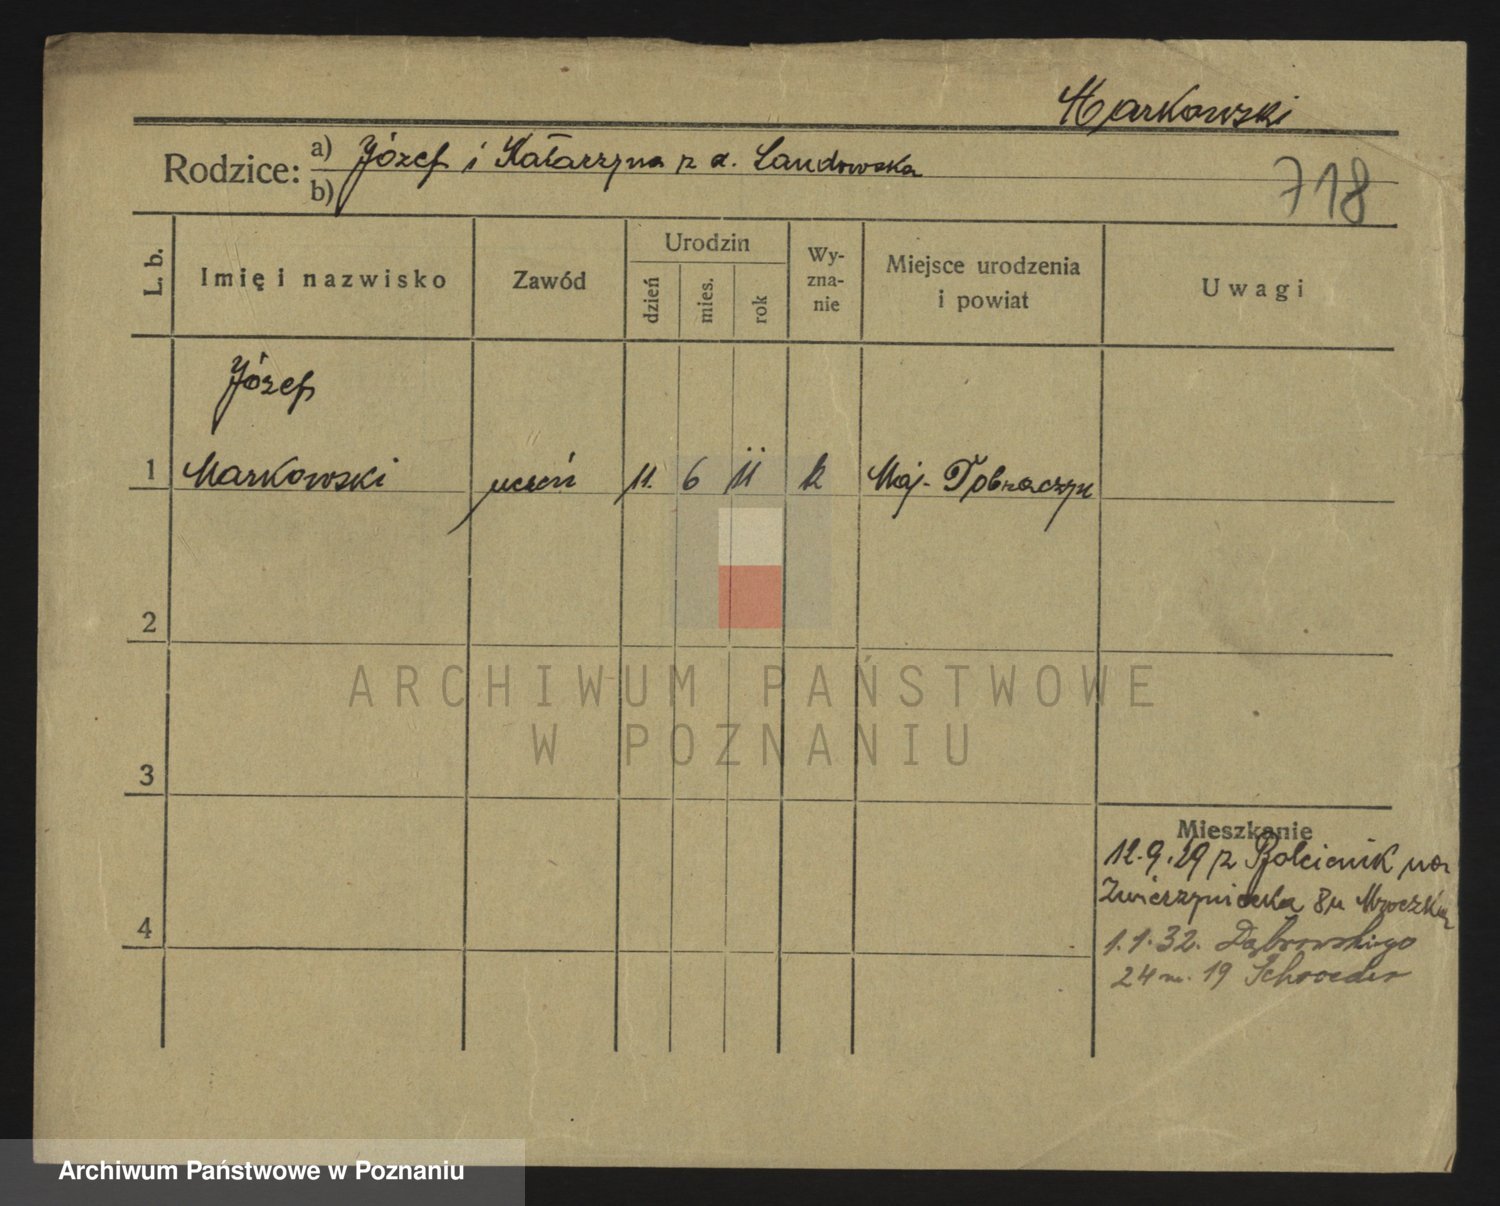 Markowski
Rodzice: a) Józef i Katarzyna z d. Landowska
b)
718
L. b. Imię i nazwisko Zawód Urodzin dzień mies. rok Wy-zna-nie Miejsce urodzenia i powiat Uwagi
Józef
1 Markowski uczeń 11. 6 11 k Maj.
2
3
4
Mieszkanie
12.9.29 z
Zwierzyniecka 8 u
1.1.32. Dąbrowskiego
24 m. 19 Schroeder
ARCHIWUM PAŃSTWOWE
W POZNANIU
Archiwum Państwowe w Poznaniu